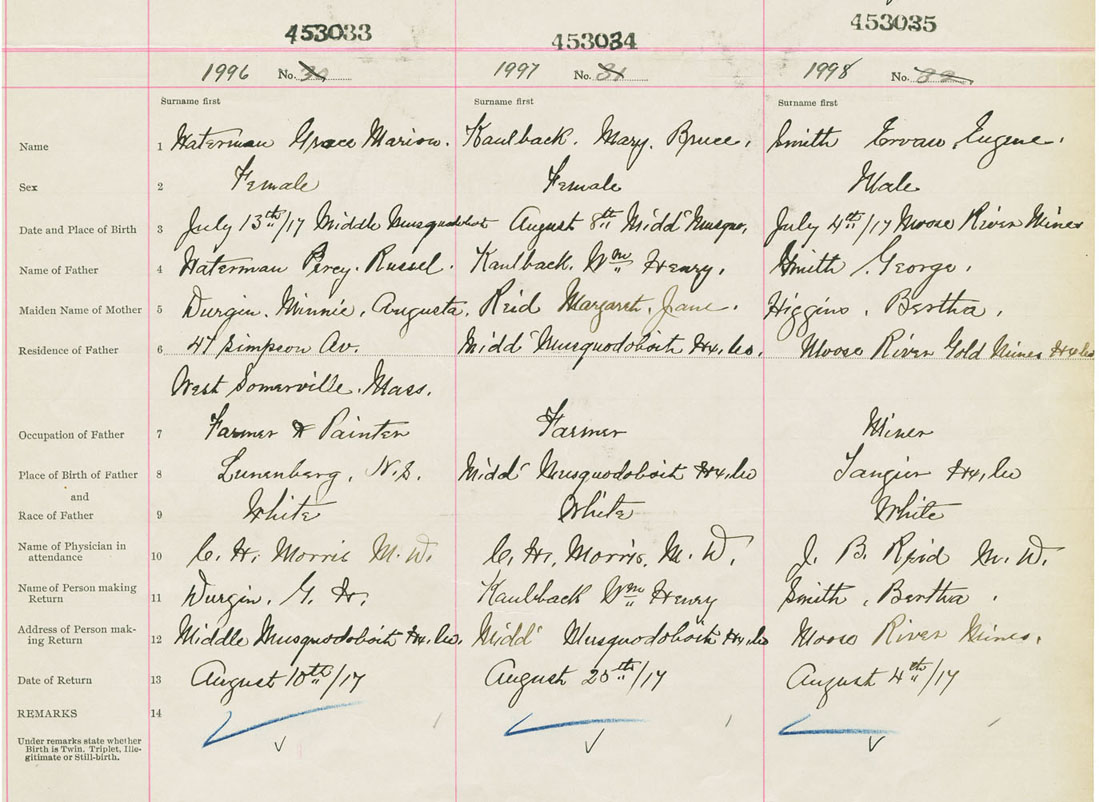 453033 453034 453035
1996 No. 30 1997 No. 31 1998 No. 32
Surname first Surname first Surname first
Name 1 Waterman Grace Marion. Kaulback. Mary. Bruce. Smith Ervan Eugene.
Sex 2 Female Female Male
Date and Place of Birth 3 July 13th/17 Middle Musquodoboit August 8th Midd' Musquo. July 4th/17 Moose River Mines
Name of Father 4 Waterman Percy. Russel. Kaulback. Wm Henry. Smith George.
Maiden Name of Mother 5 Durgin. Minnie. Augusta. Reid Margaret. Jane. Higgins. Bertha.
Residence of Father 6 47 Simpson Av. Midd' Musquodoboit Hx. Co. Moose River Gold Mines Hx. Co
West Somerville. Mass.
Occupation of Father 7 Farmer & Painter Farmer Miner
Place of Birth of Father 8 Lunenberg, N.S. Midd' Musquodoboit Hx. Co Tangier Hx. Co
and
Race of Father 9 White White White
Name of Physician in
attendance 10 C. H. Morris M.D. C. H. Morris. M.D. J. B. Reid M.D.
Name of Person making
Return 11 Durgin. G. H. Kaulback Wm Henry Smith, Bertha.
Address of Person mak-
ing Return 12 Middle Musquodoboit Hx. Co. Midd' Musquodoboit Hx. Co Moose River Mines.
Date of Return 13 August 10th/17 August 25th/17 August 4th/17
REMARKS 14
Under remarks state whether
Birth is Twin. Triplet, Ille-
gitimate or Still-birth.